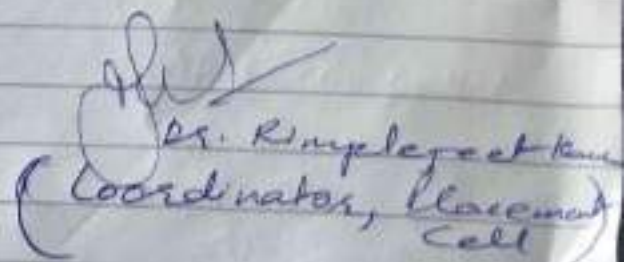 Dr. Rimplejeet Kaur
(Coordinator, Placement
Cell)